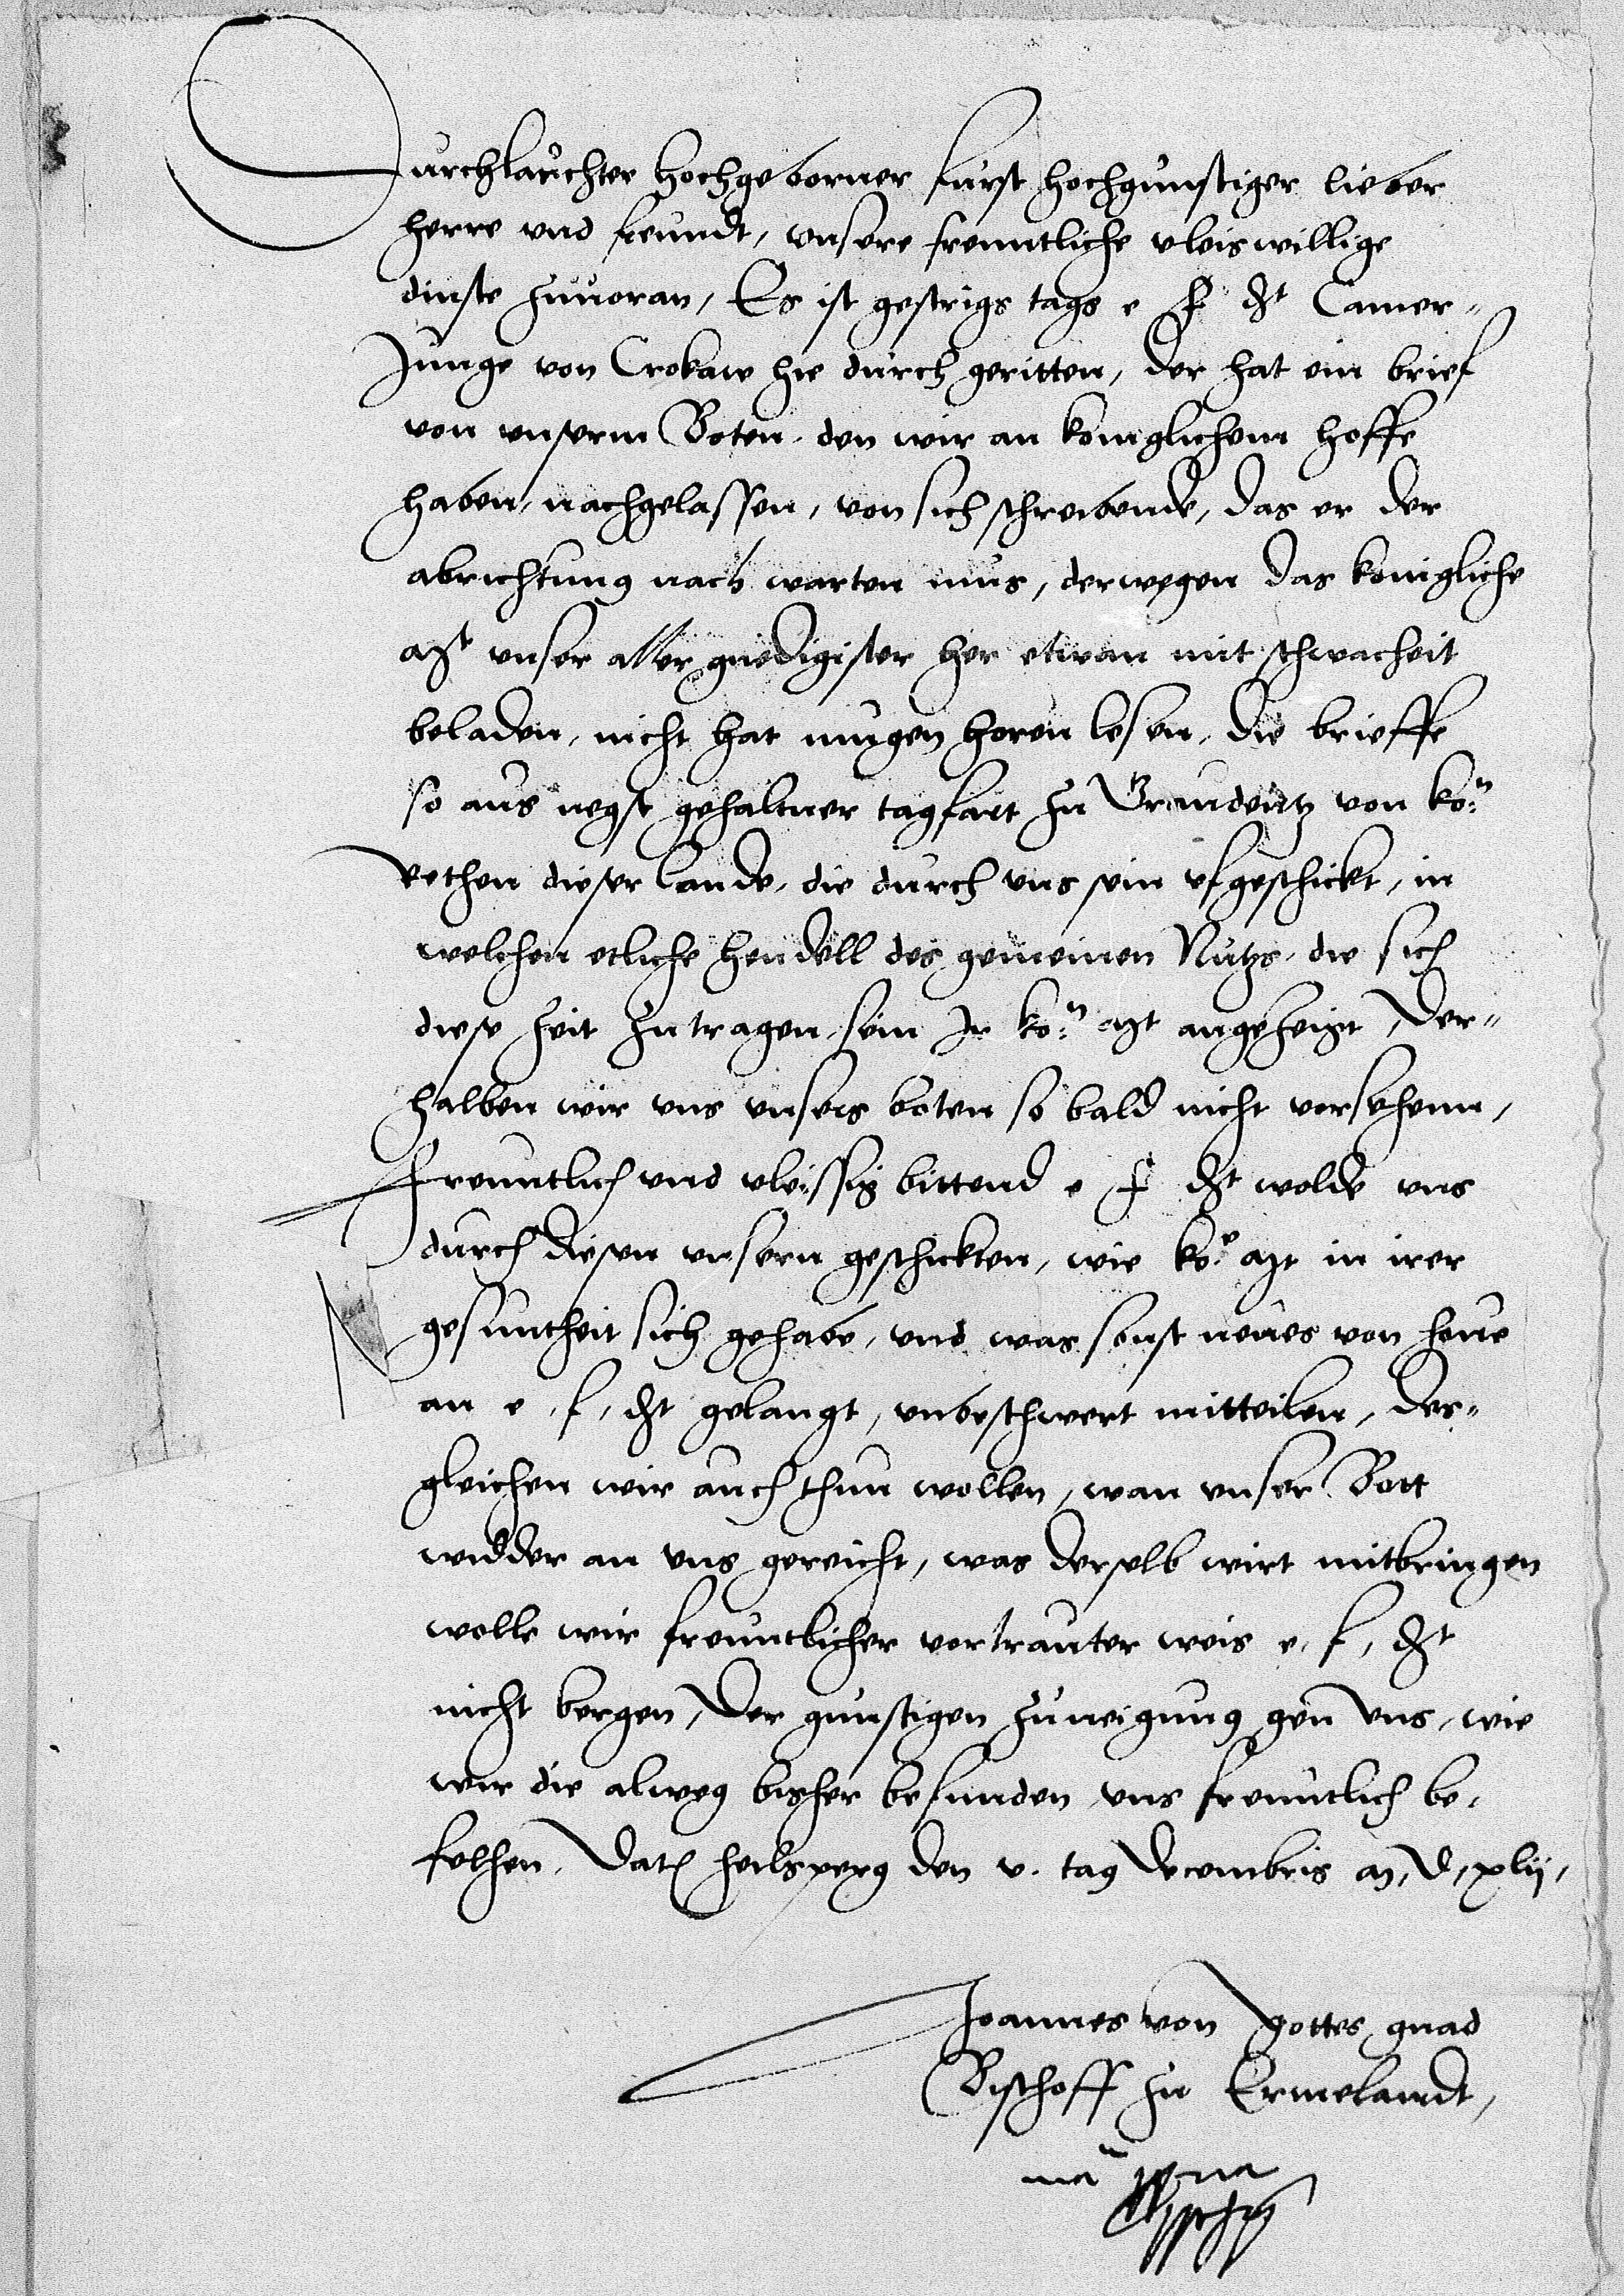 Durchlauchter hochgeborner furst hochgunstiger lieber
herre und freundt, unsere freuntliche vleiswillige
dinste zuuoran, Es ist gestrigs tags e f dt Camer-
Junge von Crokaw hie durch geritten, der hat ein brief
von unserm Boten, den wir an koniglichem hoffe
haben, nachgelassen, von sich schreibende, das er der
abrichtung nach warten mus, derwegen das konigliche
mt unser aller gnedigister her etwan mit schwacheit
beladen, nicht hat mugen horen lesen, die brieffe
so aus negst gehaltner tagfart zu Graudentz von kor
rethen dieser lande, die durch uns sein ufgeschickt, in
welchen etliche hendell des gemeinen Nutzs, die sich
diese zeit zutragen, sein Ir kor mt angezeigt, Der-
halben wir uns unsers boten so bald nicht versehenn,
freuntlich und vleissig bittend e f dt wolde uns
durch diesen unsern geschickten, wie koe mt in irer
gesuntheit sich gehabe, und was sonst neues von henne
an e, f, dt gelangt, unbeschwert mitteilen, des-
gleichen wir auch thun wollen, wan unser Bott
widder an uns gereicht, was derselb wirt mitbringen
wolle wir freuntlicher vertrauter weis e, f, dt
nicht bergen, Der gunstigen zuneigung gen uns, wie
wir die alweg bisher befunden, uns freuntlich be-
felhen. Dat heilsperg den v. tag Decembris m, d, xlii,
Joannes von gottes gnad
Bischoff zu Ermelandt,